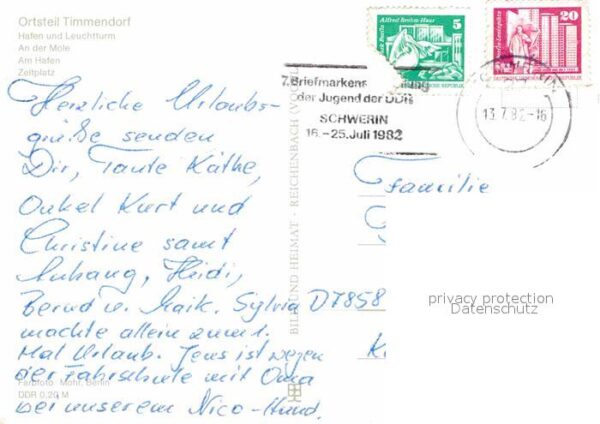 Ortsteil Timmendorf
Hafen und Leuchtturm
An der Mole
Am Hafen
Zeltplatz
Herzliche Urlaubs-
grüße senden
Dir, Tante Käthe,
Onkel Kurt und
Christine samt
Anhang, Heidi,
Bernd u. Maik. Sylvia
machte allein zum 1.
Mal Urlaub. Jens ist wegen
der Fahrschule mit Oma
bei unserem Nico-Hund.
Farbfoto: Mohr, Berlin
DDR 0,20 M
BILD UND HEIMAT · REICHENBACH (VOGTL)
Alfred Brehm-Haus
5
20
7. Briefmarken
der Jugend der DDR
SCHWERIN
16.-25. Juli 1982
13.7.82-16
Familie
D7858
privacy protection
Datenschutz